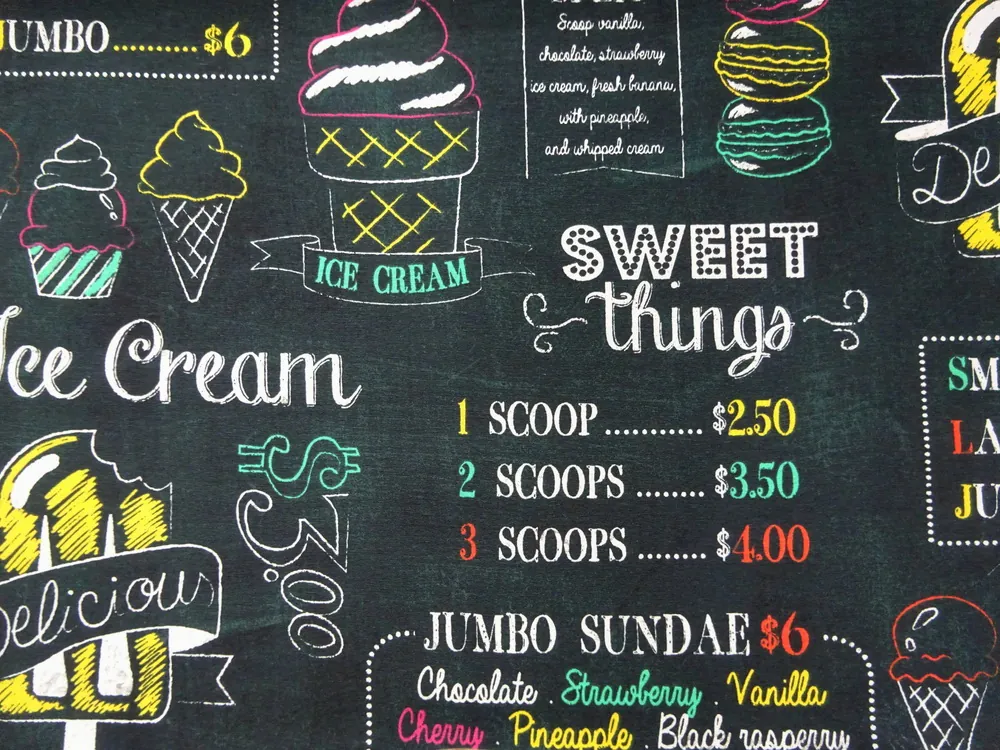 JUMBO.........$6
Scoop vanilla,
chocolate, strawberry
ice cream, fresh banana,
with pineapple,
and whipped cream
De
ICE CREAM
SWEET
things
Ice Cream
1 SCOOP ............ $2.50
2 SCOOPS ........ $3.50
3 SCOOPS ........ $4.00
$3.00
SM
LA
JU
Delicious
JUMBO SUNDAE $6
Chocolate . Strawberry . Vanilla
Cherry . Pineapple . Black raspperry